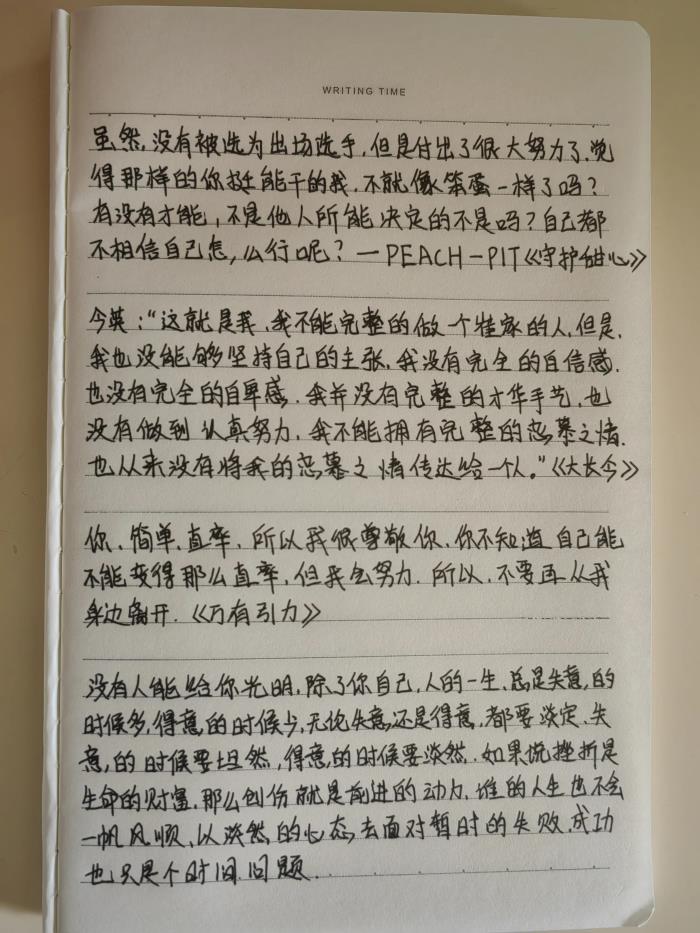 WRITING TIME
虽然,没有被选为出场选手,但是付出了很大努力了.觉
得那样的你挺能干的我.不就像笨蛋一样了吗?
有没有才能,不是他人所能决定的不是吗?自己都
不相信自己怎,么行呢?—PEACH-PIT《守护甜心》
今英:“这就是我.我不能完整的做一个雅家的人.但是.
我也没能够坚持自己的主张.我没有完全的自信感.
也没有完全的自卑感.我并没有完整的才华手艺.也
没有做到认真努力.我不能拥有完整的恋慕之情.
也从来没有将我的恋慕之情传达给一个人。”《大长今》
你.简单.直率.所以我很尊敬你.你不知道自己能
不能变得那么直率,但我会努力.所以.不要再从我
身边离开.《万有引力》
没有人能给你光明,除了你自己,人的一生.总是失意,的
时候多,得意,的时候少,无论失意,还是得意,都要淡定.失
意,的时候要坦然,得意,的时候要淡然.如果说挫折是
生命的财富.那么创伤就是前进的动力.谁的人生也不会
一帆风顺.以淡然的心态,去面对暂时的失败.成功
也只是个时间.问题.